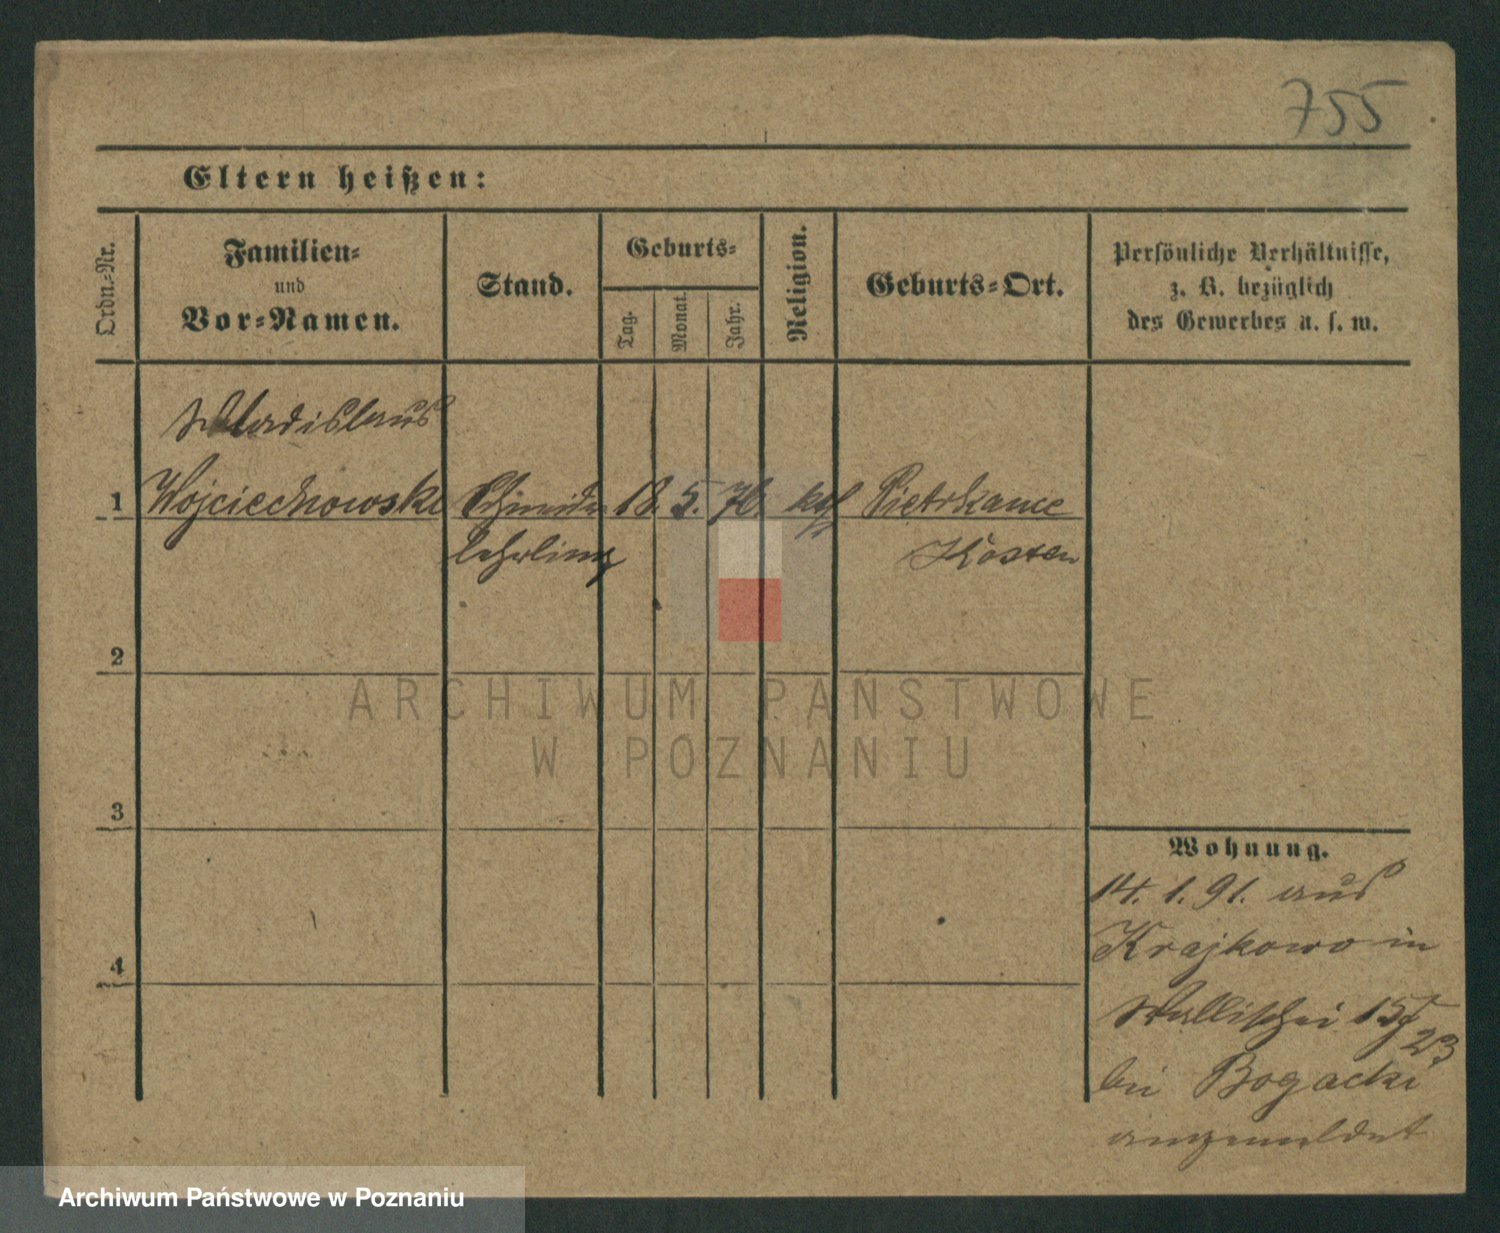 755
Eltern heißen:
Ordn.-Nr.
Familien-
und
Vor-Namen.
Stand.
Geburts-
Tag.
Monat.
Jahr.
Religion.
Geburts-Ort.
Persönliche Verhältnisse,
z. B. bezüglich
des Gewerbes u. s. w.
Wladislaus
1 Wojciechowski 18. 5. 76. kth
lehrling Kosten
2
3
4
Wohnung.
14. 1. 91. aus
Krajkowo in
Wallischei 15/
23
bei Bogacki
angemeldet
ARCHIWUM PAŃSTWOWE
W POZNANIU
Archiwum Państwowe w Poznaniu